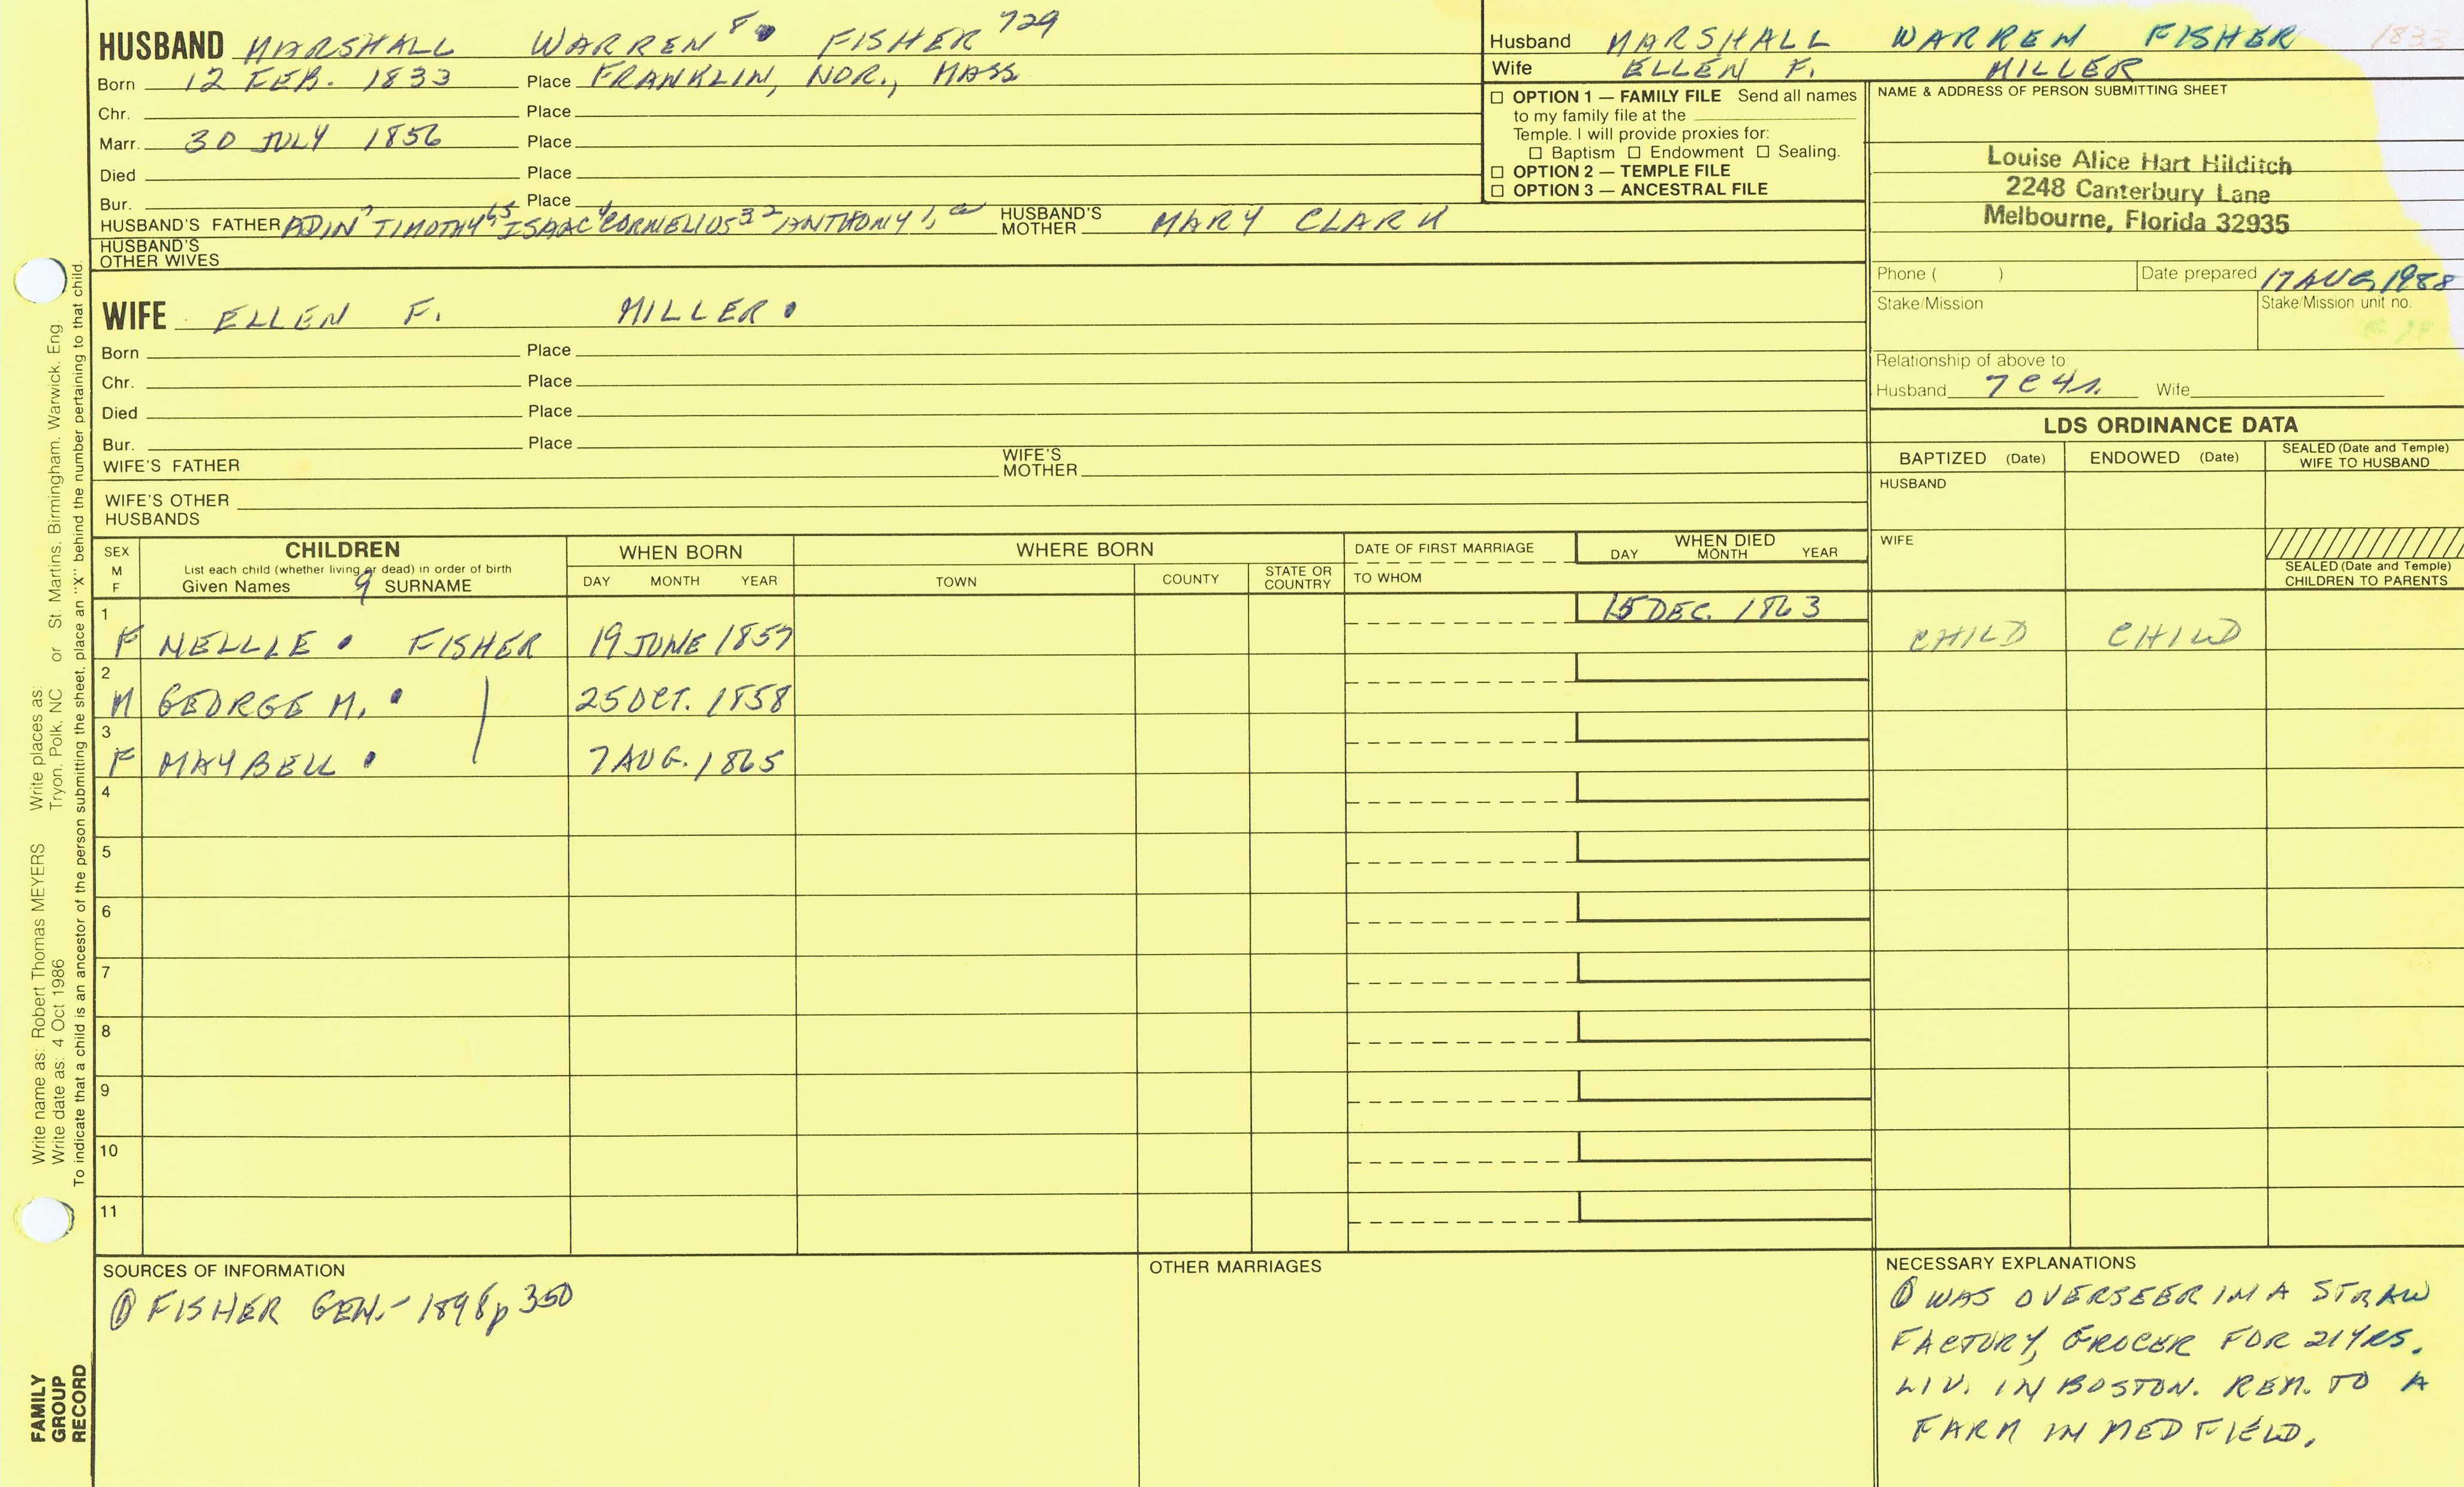 HUSBAND MARSHALL WARREN 8 FISHER 729
Born 12 FEB. 1833 Place FRANKLIN, NOR., MASS
Chr. Place
Marr. 30 JULY 1856 Place
Died Place
Bur. Place
HUSBAND'S FATHER ADIN 7 TIMOTHY 6,5 ISAAC 4 CORNELIUS 3 2 ANTHONY 1, HUSBAND'S MOTHER MARY CLARK
HUSBAND'S OTHER WIVES
Husband MARSHALL WARREN FISHER 1833
Wife ELLEN F. MILLER
☐ OPTION 1 — FAMILY FILE Send all names
to my family file at the
Temple. I will provide proxies for:
☐ Baptism ☐ Endowment ☐ Sealing.
☐ OPTION 2 — TEMPLE FILE
☐ OPTION 3 — ANCESTRAL FILE
NAME & ADDRESS OF PERSON SUBMITTING SHEET
Louise Alice Hart Hilditch
2248 Canterbury Lane
Melbourne, Florida 32935
Phone ( ) Date prepared 17 AUG 1988
Stake/Mission Stake/Mission unit no.
Relationship of above to:
Husband 7C4R. Wife
WIFE ELLEN F. MILLER
Born Place
Chr. Place
Died Place
Bur. Place
WIFE'S FATHER WIFE'S MOTHER
WIFE'S OTHER
HUSBANDS
LDS ORDINANCE DATA
BAPTIZED (Date) ENDOWED (Date) SEALED (Date and Temple) WIFE TO HUSBAND
HUSBAND
WIFE
SEALED (Date and Temple)
CHILDREN TO PARENTS
SEX M F
CHILDREN
List each child (whether living or dead) in order of birth
Given Names 9 SURNAME
WHEN BORN
DAY MONTH YEAR
WHERE BORN
TOWN COUNTY STATE OR COUNTRY
DATE OF FIRST MARRIAGE
TO WHOM
WHEN DIED
DAY MONTH YEAR
1 15 DEC. 1863
F NELLIE FISHER 19 JUNE 1857 CHILD CHILD
2
M GEORGE M. 25 OCT. 1858
3
F MAYBELL 7 AUG. 1865
4
5
6
7
8
9
10
11
SOURCES OF INFORMATION
① FISHER GEN.- 1898 p 350
OTHER MARRIAGES
NECESSARY EXPLANATIONS
① WAS OVERSEER IN A STRAW
FACTORY, GROCER FOR 21 YRS.
LIV. IN BOSTON. REM. TO A
FARM IN MEDFIELD.
Write name as: Robert Thomas MEYERS Write places as:
Write date as: 4 Oct 1986 Tryon, Polk, NC or St. Martins, Birmingham, Warwick, Eng.
To indicate that a child is an ancestor of the person submitting the sheet, place an "X" behind the number pertaining to that child.
FAMILY
GROUP
RECORD